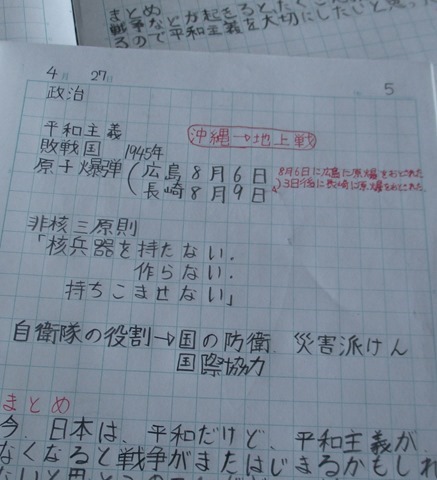 まとめ
戦争などが起きると
るので平和主義を大切にしたいと思った
4月 27日
5
政治
平和主義
沖縄→地上戦
敗戦国 1945年
原子爆弾(広島8月6日
長崎8月9日)
8月6日に広島に原爆をおとされた
3日後に長崎に原爆をおとされた
非核三原則
「核兵器を持たない.
作らない.
持ちこませない」
自衛隊の役割→国の防衛 災害派けん
国際協力
まとめ
今、日本は、平和だけど、平和主義が
なくなると戦争がまたはじまるかもしれ
ないと思